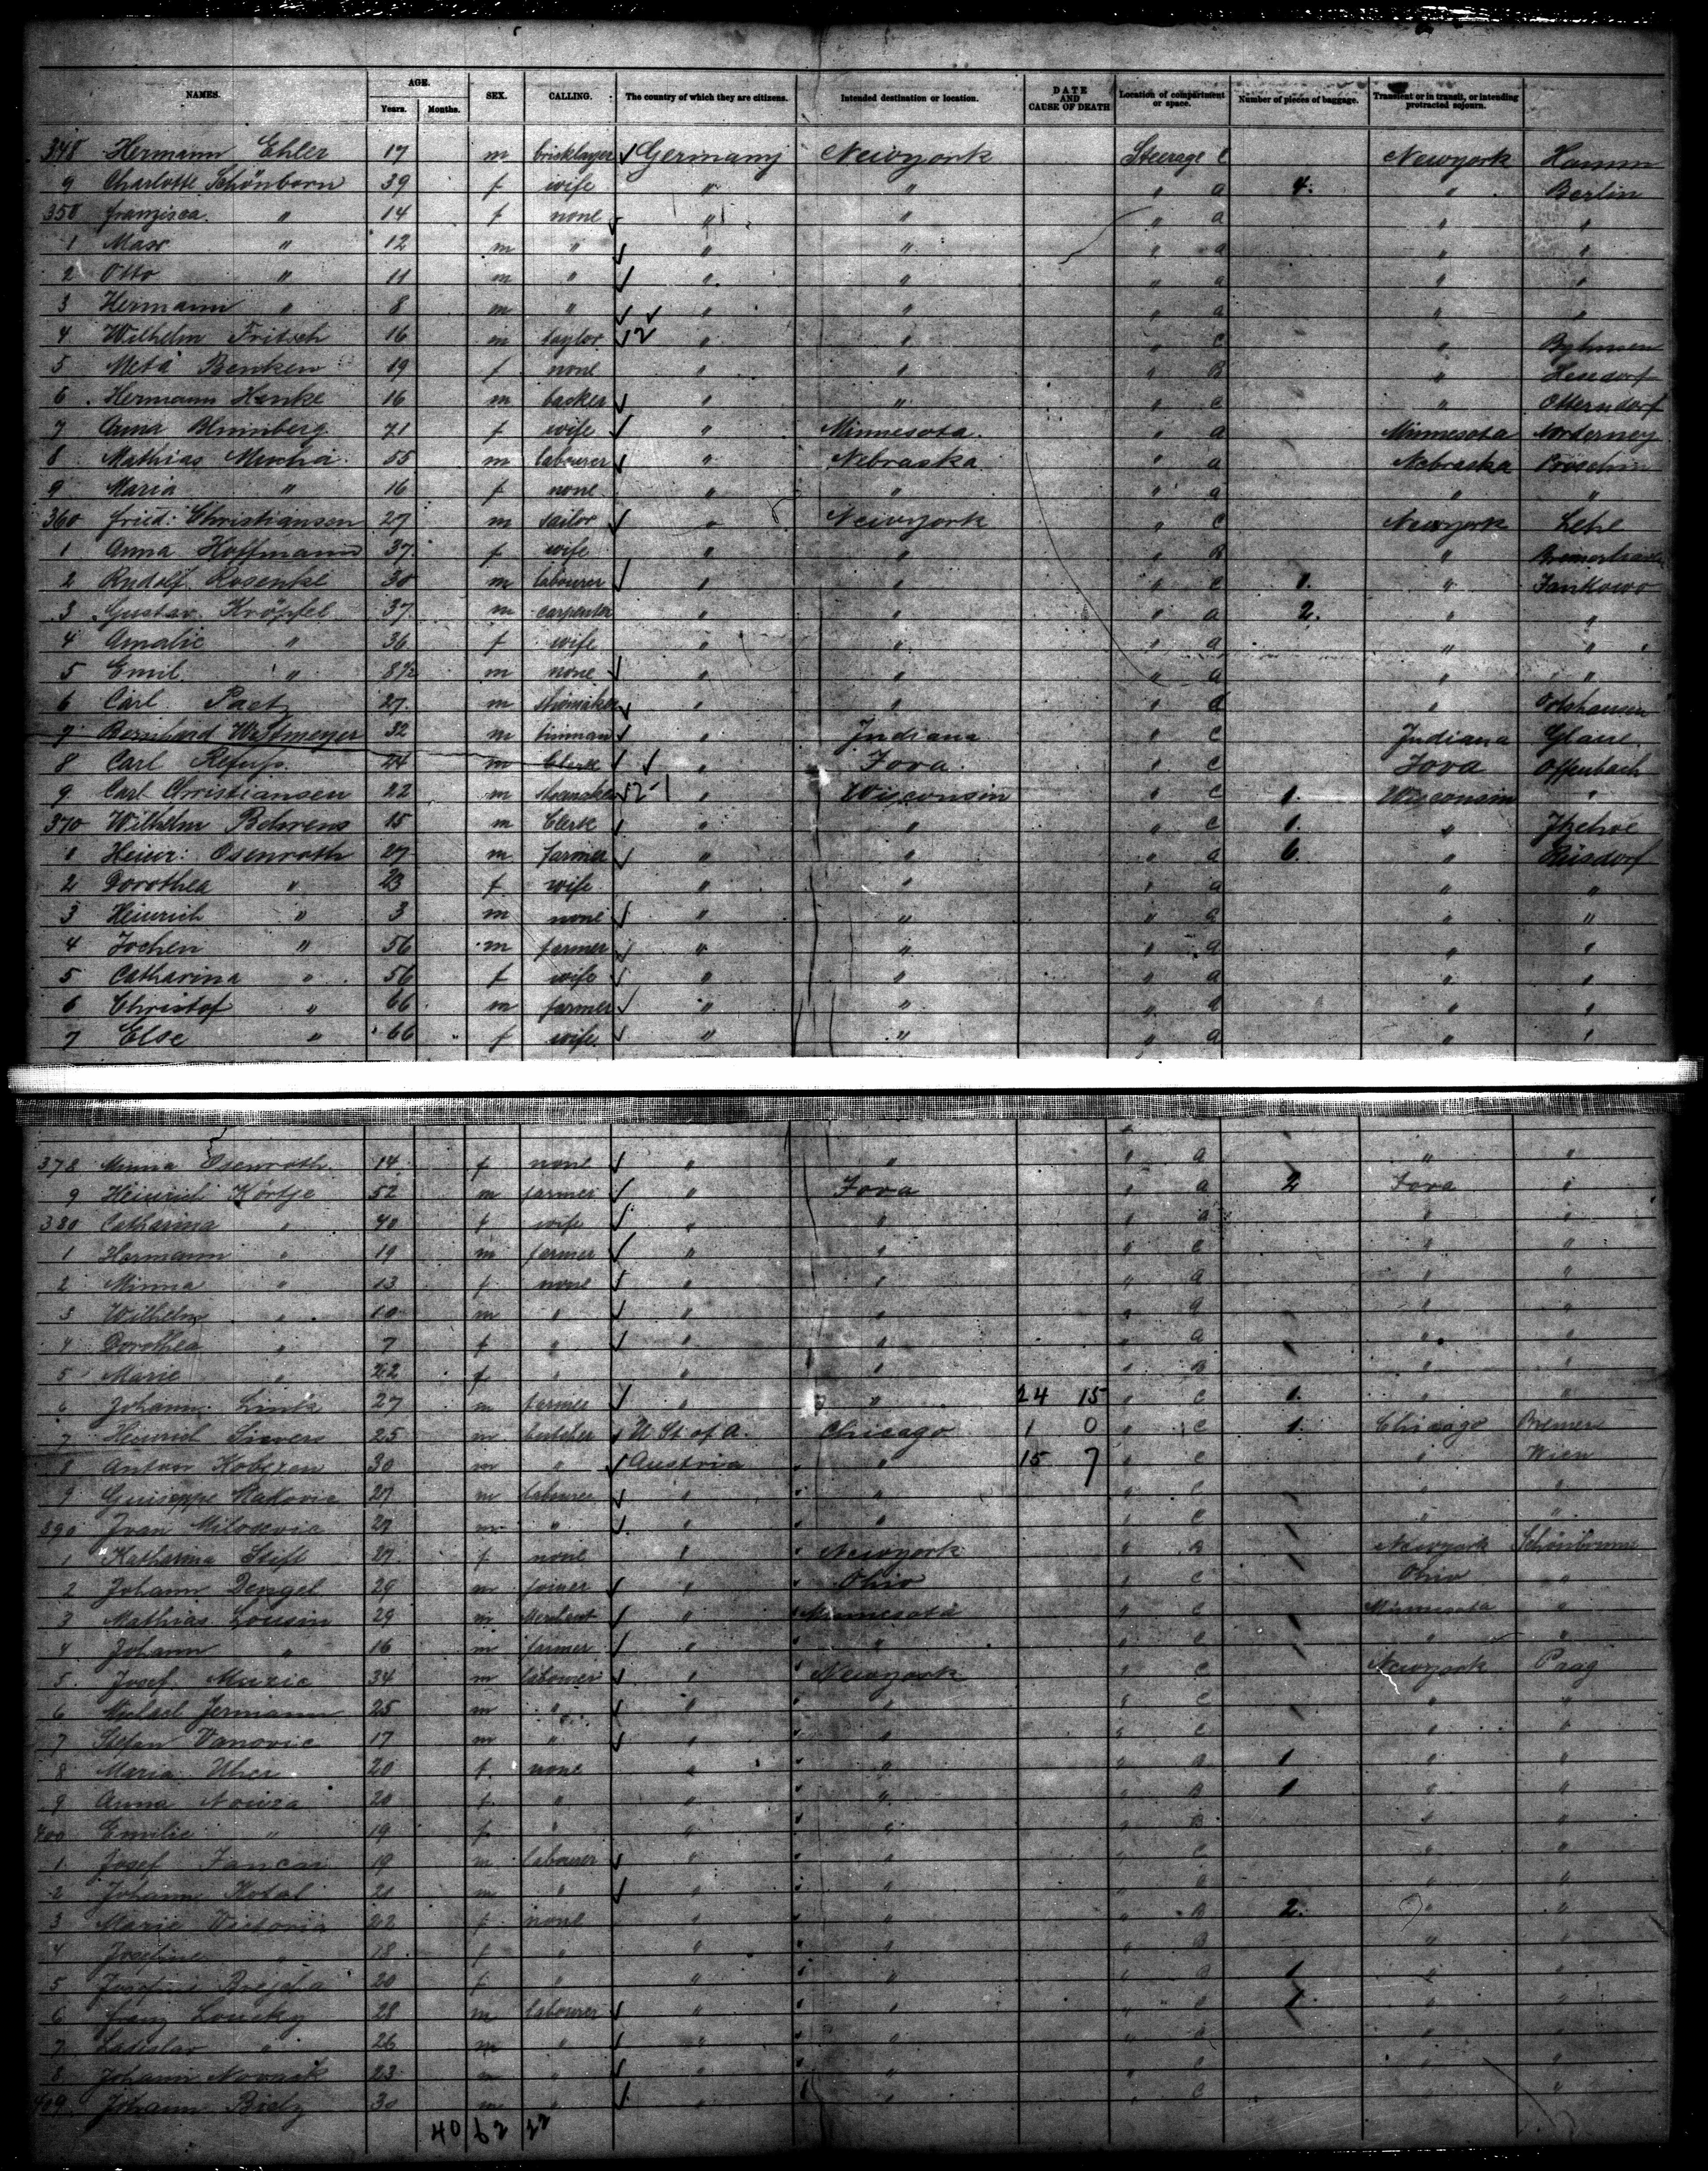 NAMES. AGE. Years. Months. SEX. CALLING. The country of which they are citizens. Intended destination or location. DATE AND CAUSE OF DEATH Location of compartment or space. Number of pieces of baggage. Transient or in transit, or intending protracted sojourn.
348 Hermann Ehler 17 m bricklayer Germany Newyork Steerage C Newyork Hamm
9 Charlotte Schönborn 39 f wife " " " a 4. " Berlin
350 Franzisca " 14 f none " " " a " "
1 Max " 12 m " " " " a " "
2 Otto " 11 m " " " " a " "
3 Hermann " 8 m " " " " a " "
4 Wilhelm Fritsch 16 m taylor 12 " " " C "
5 Meta Benken 19 f none " " " B "
6 Hermann Henke 16 m backer " " " C " Otterndorf
7 Anna Blumberg 71 f wife " Minnesota " a Minnesota Norderney
8 Mathias Mucha 55 m labourer " Nebraska " a Nebraska
9 Maria " 16 f none " " " a " "
360 Fried: Christiansen 27 m sailor " Newyork " C Newyork Lehe
1 Anna Hoffmann 37 f wife " " " B " Bremerhaven
2 Rudolf Rosenke 30 m labourer " " " C 1. " Jankowo
3 Gustav Kröpfel 37 m carpenter " " " a 2. " "
4 Amalie " 36 f wife " " " a " "
5 Emil " 8½ m none " " " a " "
6 Carl Paetz 27 m shomaker " " " "
7 Bernhard Westmeyer 32 m tinman " Indiana " C Indiana
8 Carl Refuss 44 m Clerk " Iova " C Iova Offenbach
9 Carl Christiansen 22 m shomaker 12-1 " Wisconsin " C 1. Wisconsin "
370 Wilhelm Behrens 15 m Clerk " " " C 1. " Itzehoe
1 Heinr: Osenroth 27 m farmer " " " a 6. " Reisdorf
2 Dorothea " 23 f wife " " " a " "
3 Heinrich " 3 m none " " " a " "
4 Jochen " 56 m farmer " " " a " "
5 Catharina " 56 f wife " " " a " "
6 Christof " 66 m farmer " " " a " "
7 Else " 66 f wife " " " a " "
378 Minna Osenroth 14 f none " " " a " "
9 Heinrich Körtje 52 m farmer " Iova " a 2 Iova "
380 Catharina " 40 f wife " " " a " "
1 Hermann " 19 m farmer " " " C " "
2 Minna " 13 f none " " " a " "
3 Wilhelm " 10 m " " " " a " "
4 Dorothea " 7 f " " " " a " "
5 Marie " 22 f " " " " B " "
6 Johann Link 27 m farmer " " 24 15 " C 1. " "
7 Heinrich Sievers 25 m butcher U. St. of A. Chicago 1 0 " C 1. Chicago Bremen
8 Anton 30 m " Austria " 15 7 " C " Wien
9 Guiseppe Rakovic 27 m labourer " " " C " "
390 Ivan Milosevic 27 m " " " " C " "
1 Katharina Stift 27 f none " Newyork " B Newyork Schönbrunn
2 Johann Dengel 29 m joiner " Ohio " C Ohio "
3 Mathias Lousin 29 m Merchant " Minnesota " C Minnesota "
4 Johann " 16 m farmer " " " C " "
5 Josef 34 m labourer " Newyork " C Newyork Prag
6 Michael Jermann 25 m " " " " C " "
7 Stefan Vanovic 17 m " " " " C " "
8 Maria Uher 20 f none " " " B 1 " "
9 Anna Nouza 20 f " " " " B 1 " "
400 Emilie " 19 f " " " " B " "
1 Josef Jancar 19 m labourer " " " C " "
2 Johann Kotal 21 m " " " " C " "
3 Marie Victoria 22 f none " " " B 2. " "
4 Josefine " 18 f " " " " B " "
5 Josefine Brejcha 20 f " " " " B 1 " "
6 Franz Loucky 28 m labourer " " " C 1. " "
7 Ladislav " 26 m " " " " C " "
8 Johann Novack 23 m " " " " C " "
409 Johann Bielz 30 m " " " " C " "
40 62 22